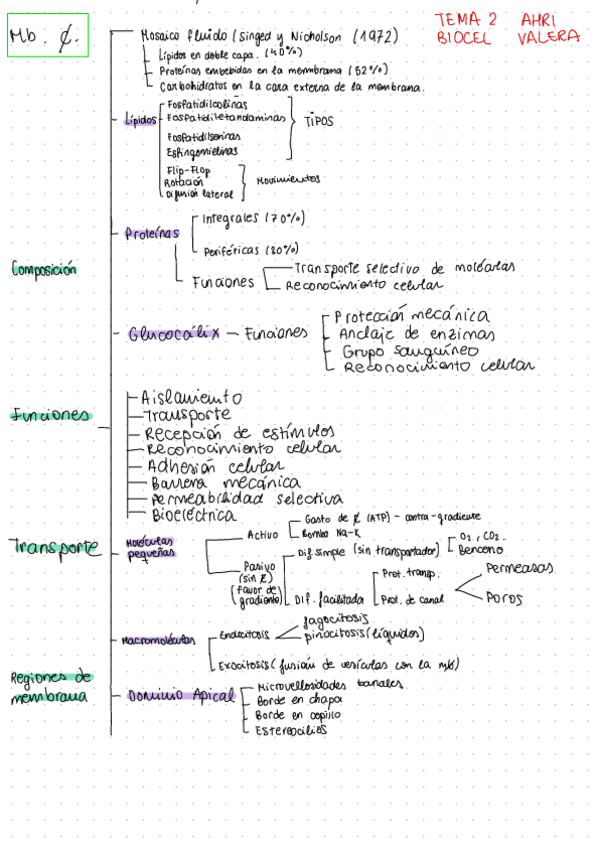 Mb. ₡.
TEMA 2 AHRI
BIOCEL VALERA
Mosaico fluido (Singed y Nicholson (1972)
Lípidos en doble capa. (40%)
Proteínas embebidas en la membrana (52%)
Carbohidratos en la cara externa de la membrana.
Composición
Lípidos
Fosfatidilcolinas
Fosfatidiletandaminas
Fosfatidilserinas
Esfingomielinas
TIPOS
Flip-Flop
Rotación
Difusión lateral
Movimientos
Proteínas
Integrales (70%)
Periféricas (30%)
Funciones
Transporte selectivo de moléculas
Reconocimiento celular
Glucocálix - Funciones
Protección mecánica
Anclaje de enzimas
Grupo sanguíneo
Reconocimiento celular
Funciones
Aislamiento
Transporte
Recepción de estímulos
Reconocimiento celular
Adhesión celular
Barrera mecánica
Permeabilidad selectiva
Bioeléctrica
Transporte
Moléculas pequeñas
Activo
Gasto de E (ATP) - contra-gradiente
Bomba Na-K
Pasivo
(sin E)
(favor de gradiente)
Dif simple (sin transportador)
O₂, CO₂.
Benceno
Dif. facilitada
Prot. transp.
Prot. de canal
Permeasas
Poros
Macromoléculas
Endocitosis
fagocitosis
pinocitosis (líquidos)
Exocitosis (fusión de vesículas con la mb)
Regiones de membrana
Dominio Apical
Microvellosidades banales
Borde en chapa
Borde en cepillo
Estereocilios